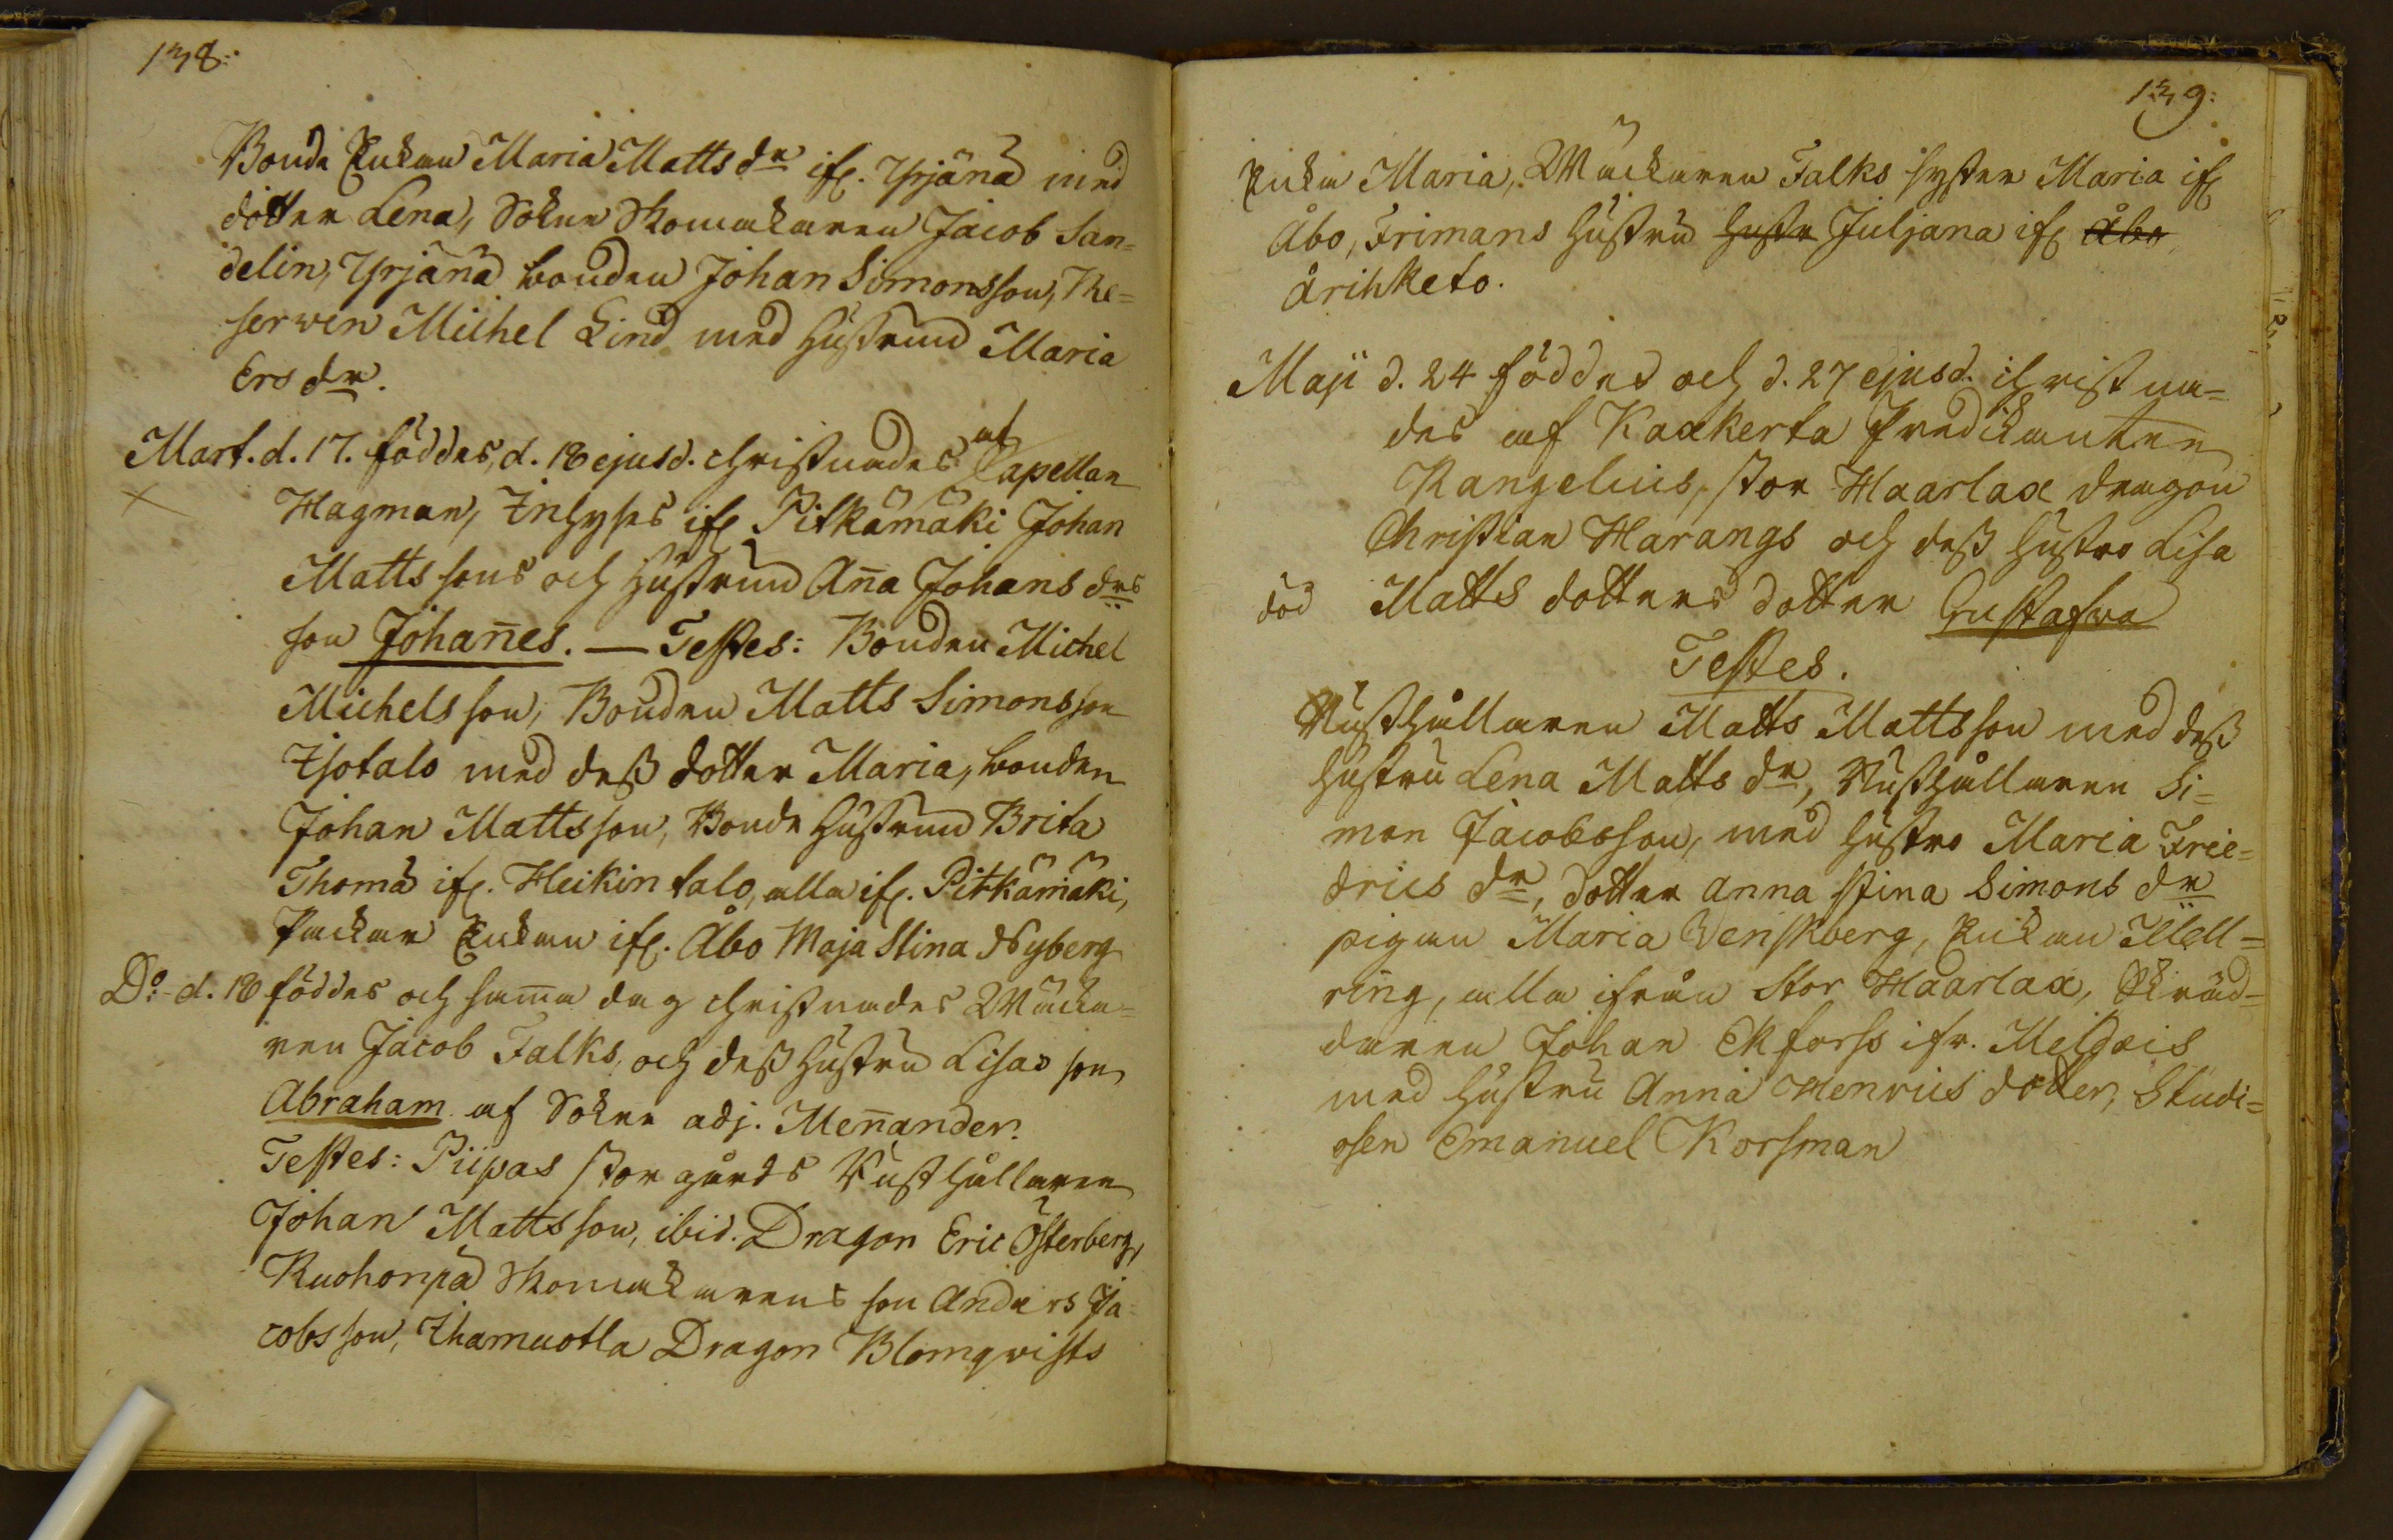 138:
Bonde Enkan Maria Matts dr ifr. Yrjänä med
dotter Lena, Sokne Skomakaren Jacob San=
delin, Yrjänä bonden Johan Simonsson, Re=
serven Michel Lind med hustrun Maria
Ers dr.
Mart. d. 17. föddes, d. 18 ejusd. christnades af Capellan
Hagman, Inhyses ifr Pitkämäki Johan
Mattssons och hustrun Anna Johans drs
son Johannes. — Testes: Bonden Michel
Michelsson, Bonden Matts Simonsson
Isotalo med dess dotter Maria, bonden
Johan Mattsson, Bonde hustrun Brita
Thomä ifr. Heikin talo, alla ifr. Pitkämäki,
Packar Enkan ifr. Åbo Maja Stina Nyberg
Do. d. 18 föddes och samma dag christnades Wäcka=
ren Jacob Falks, och dess hustru Lisas son
Abraham af Sokne adj. Mennander.
Testes: Piipas stor gårds Rusthållaren
Johan Mattsson, ibid. Dragon Eric Österberg,
Ruohonpä Skomakarens son Anders Ja=
cobsson, Ihamuotla Dragon Blomqvists
139:
Enka Maria, Wäckaren Falks syster Maria ifr
Åbo, Frimans hustru hustr Juljana ifr Åbo
Ärihketo.
Maji d. 24 föddes och d. 27 ejusd. christna=
des af Kaxkerta Predikanten
Rangelius, stor Haarlax dragon
Christian Harangs och dess hustro Lisa
död Matts dotters dotter Gustafva
Testes.
Rusthållaren Matts Mattsson med dess
hustru Lena Matts dr, Rusthållaren Si=
mon Jacobsson, med hustro Maria Frie=
drics dr, dotter Anna Stina Simons dr
pigan Maria Wenskberg, Enkan Mell=
ring, alla ifrån Stor Haarlax, Skräd=
daren Johan Ekforss ifr. Meldois
med hustru Anna Henrics dotter, Studi=
osen Emanuel Korsman